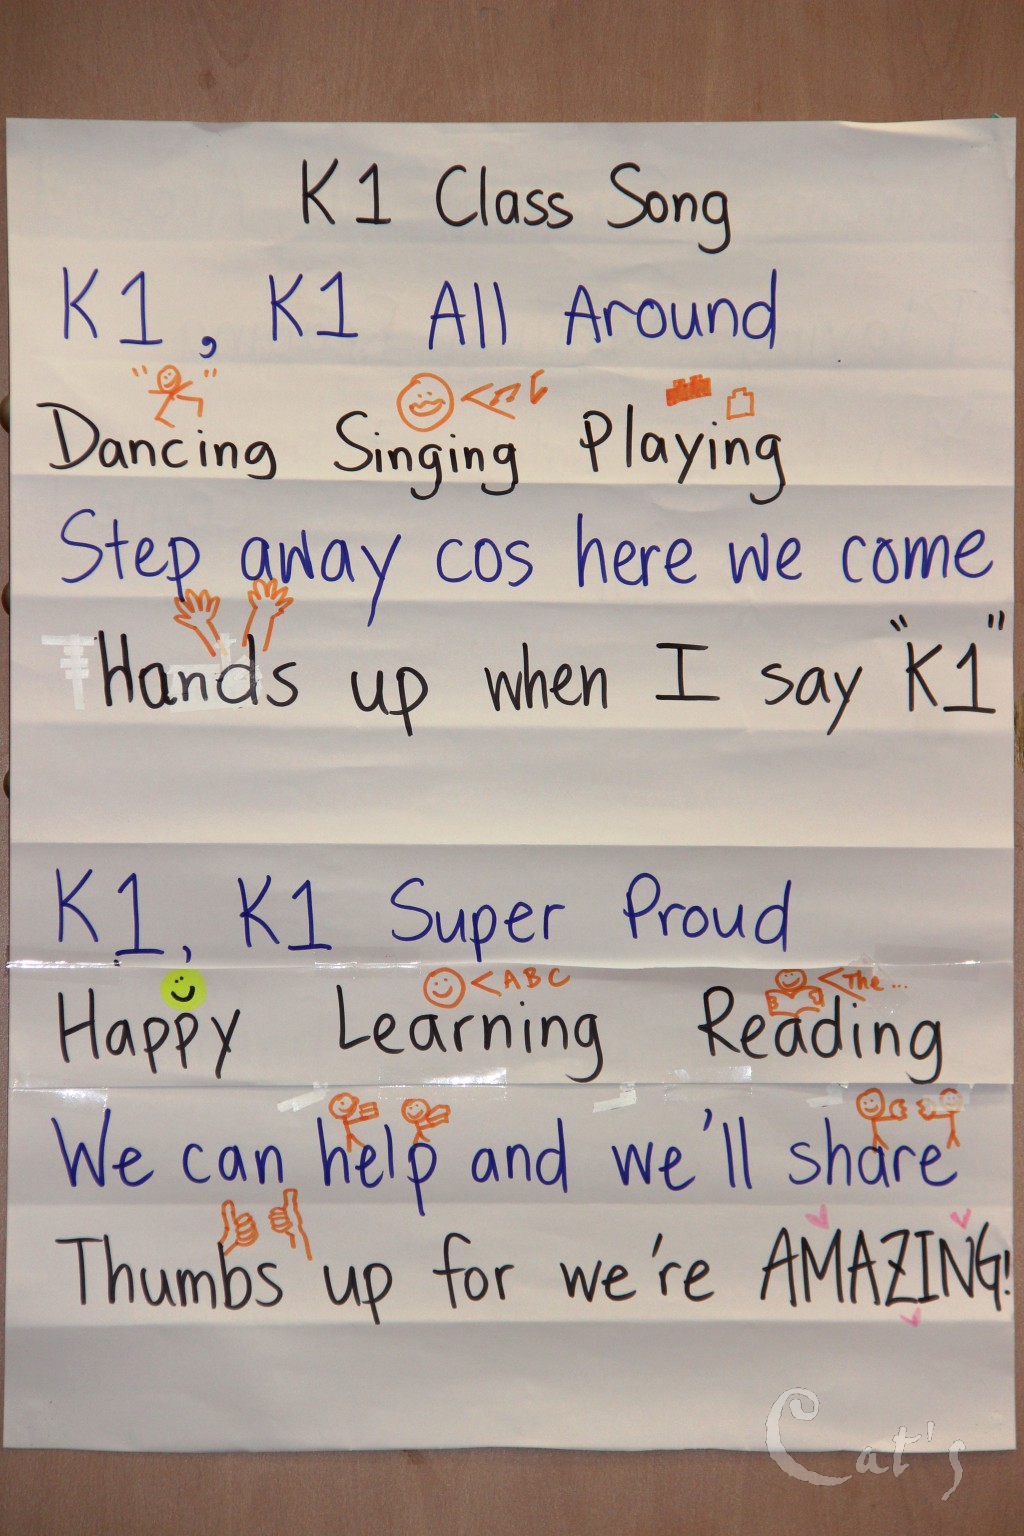 K1 Class Song
K1, K1 All Around
Dancing Singing Playing
Step away cos here we come
Hands up when I say "K1"
K1, K1 Super Proud
ABC The...
Happy Learning Reading
We can help and we'll share
Thumbs up for we're AMAZING!
Cat's